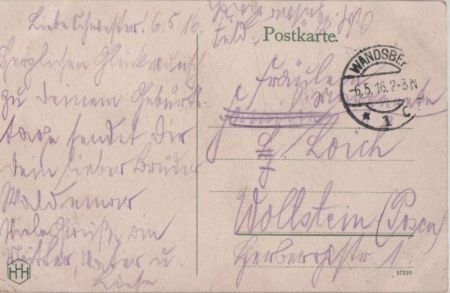 Liebe Schwester. 6.5.16.
Herzlichen Glückwunsch
zu deinem Geburts-
tage sendet Dir
dein lieber Bruder
Waldemar
Viele Grüße an
Mutter, Vater u.
Feld
Postkarte.
WANDSBEK
-6.5.16.2-3N
* 1 c
Fräulein
Lorch
Wollstein (Posen)
Herbergstr. 1
HH